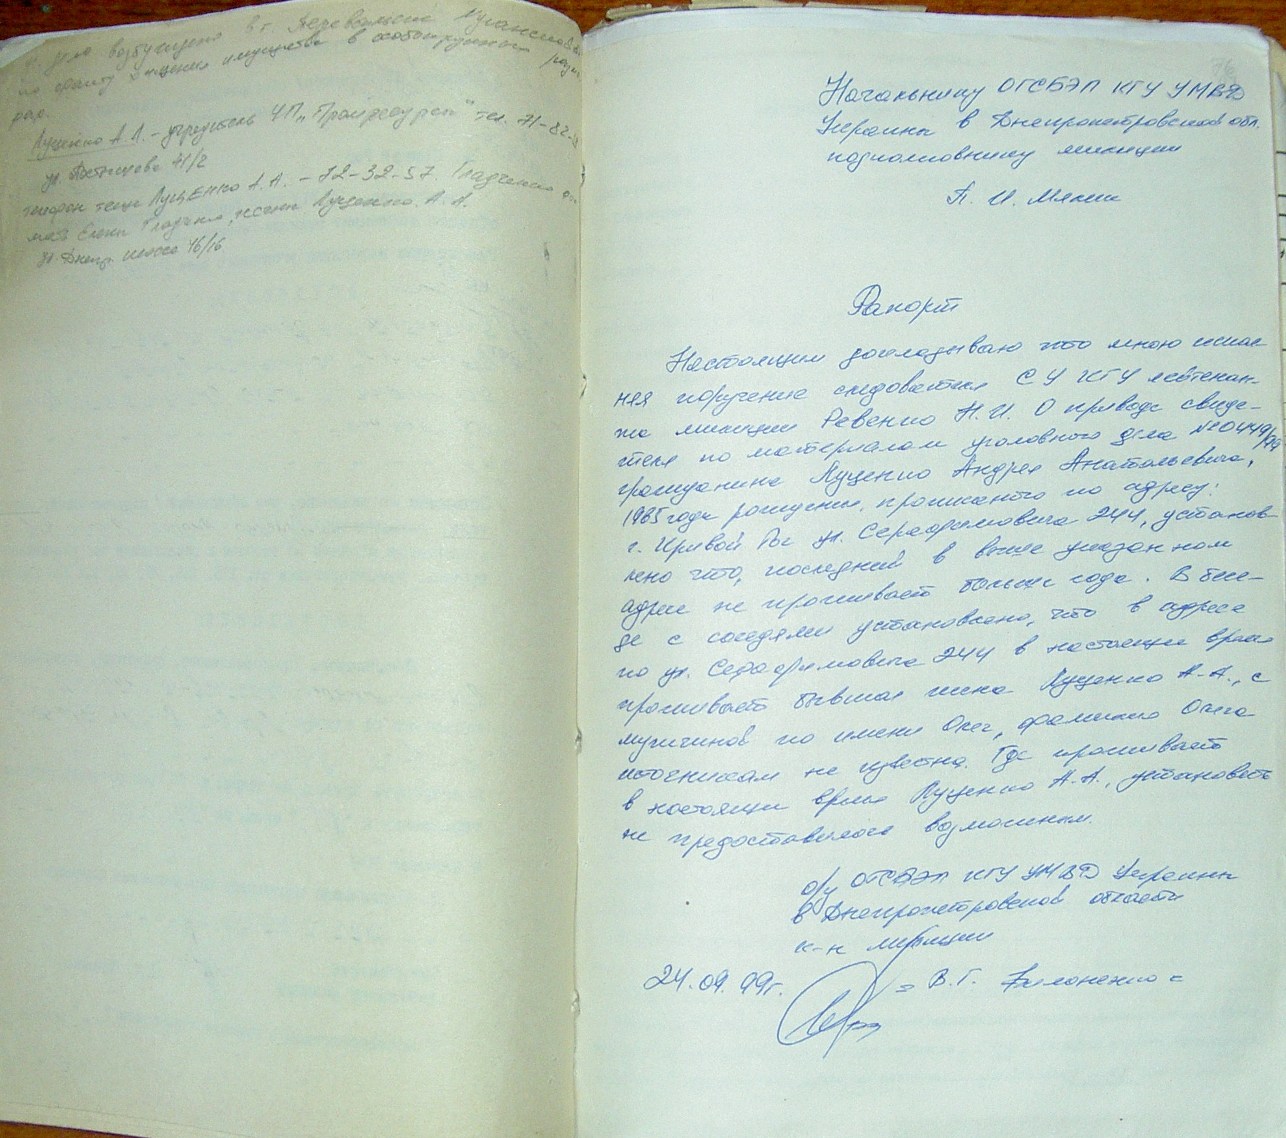 дело возбуждено в г. Перевальске Луганской
по факту хищения имущества в особокрупном
раз.
Луценко А.А. - учредитель ЧП „Промресурст" тел. 71-82-
ул. 71/2
телефон тещи Луценко А.А. - 72-32-57. Гладченко
мать Елены Гладченко, жены Луценко. А. А.
ул. Днепр. шоссе 46/16
Начальнику ОГСБЭП КГУ УМВД
Украины в Днепропетровской обл.
подполковнику милиции
П. И. Мякин
Рапорт
Настоящим докладываю что мною испол-
няя поручение следователя СУ КГУ лейтенан-
та милиции Ревенко Н.И. О приводе свиде-
теля по материалам уголовного дела №0449/99
гражданина Луценко Андрея Анатольевича,
1965 года рождения, прописаного по адресу:
г. Кривой Рог ул. Серафимовича 244, установ-
лено что, последний в выше указанном
адресе не проживает больше года. В бесе-
де с соседями установлено, что в адресе
по ул. Серафимовича 244 в настоящие время
проживает бывшая жена Луценко А.А., с
мужчиной по имени Олег, фамилия Олега
источникам не известна. Где проживает
в настоящие время Луценко А.А., установить
не предоставилось возможным.
о/у ОГСБЭП КГУ УМВД Украины
в Днепропетровской области
к-н милиции
24.09.99г. = В.Г. Билоненко =